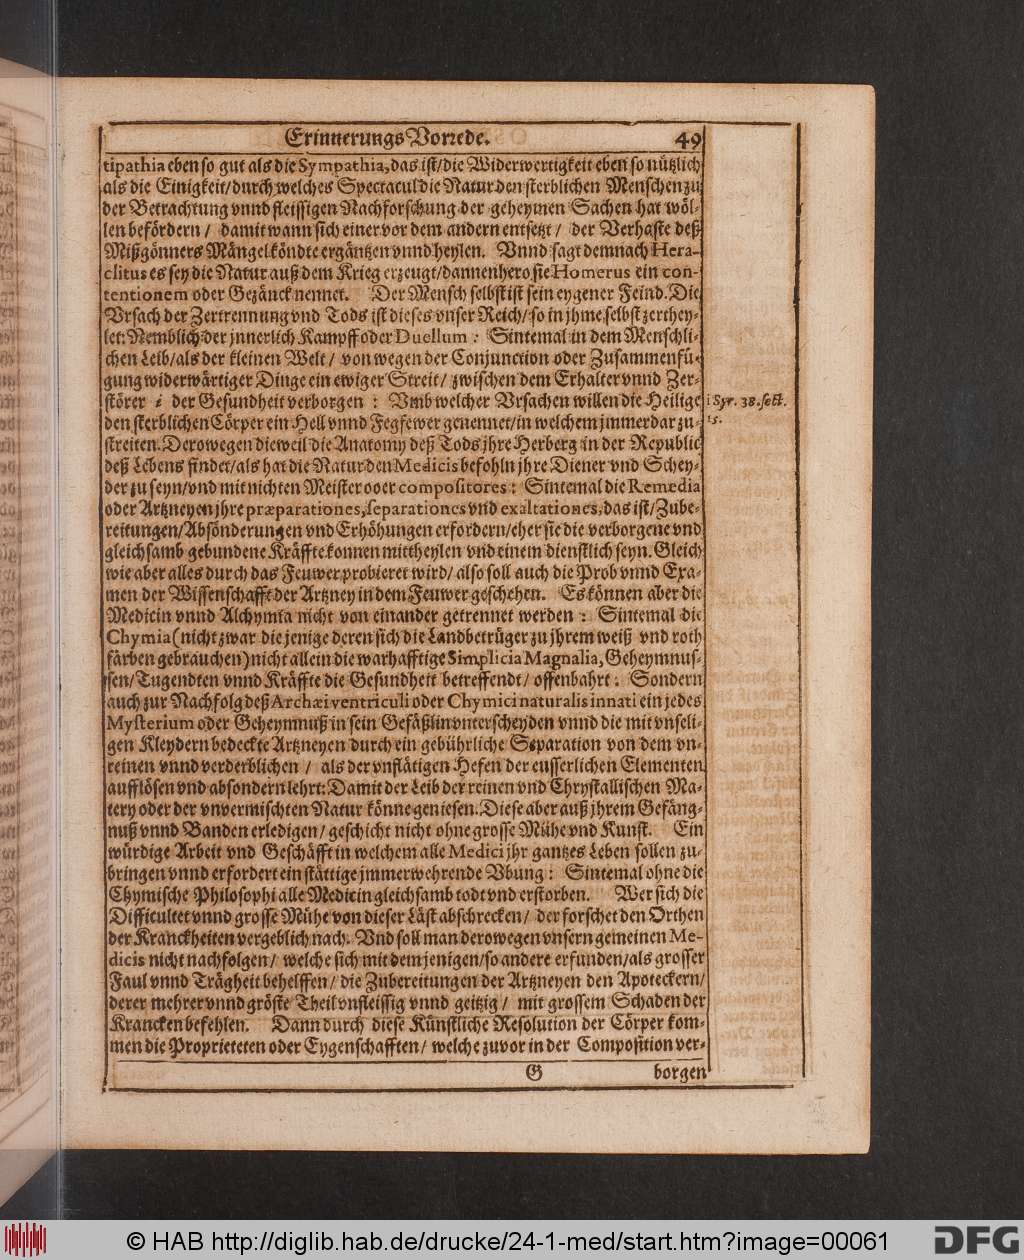 Erinnerungs Vorrede. 49
tipathia eben so gut als die Sympathia, das ist/die Widerwertigkeit eben so nützlich
als die Einigkeit/durch welches Spectacul die Natur den sterblichen Menschen zu
der Betrachtung vnnd fleissigen Nachforschung der geheymen Sachen hat wöl-
len befördern / damit wann sich einer vor dem andern entsetzt / der Verhaste deß
Mißgönners Mängel köndte ergäntzen vnnd heylen. Vnnd sagt demnach Hera-
clitus es sey die Natur auß dem Krieg erzeugt/dannenhero sie Homerus ein con-
tentionem oder Gezänck nennet. Der Mensch selbst ist sein eygener Feind. Die
Vrsach der Zertrennung vnd Tods ist dieses vnser Reich/so in jhme selbst zerthey-
let: Nemblich der jnnerlich Kampff oder Duellum : Sintemal in dem Menschli-
chen Leib/als der kleinen Welt / von wegen der Conjunction oder Zusammenfü-
gung widerwärtiger Dinge ein ewiger Streit/ zwischen dem Erhalter vnnd Zer-
störer i der Gesundheit verborgen : Vmb welcher Vrsachen willen die Heilige
den sterblichen Cörper ein Hell vnnd Fegfewer genennet/in welchem jmmerdar zu-
streiten. Derowegen dieweil die Anatomy deß Tods jhre Herberg in der Republic
deß Lebens findet/als hat die Natur den Medicis befohln jhre Diener vnd Schey-
der zu seyn/vnd mit nichten Meister oder compositores : Sintemal die Remedia
oder Artzneyen jhre præparationes, separationes vnd exaltationes, das ist/Zube-
reitungen/Absönderungen vnd Erhöhungen erfordern/eher sie die verborgene vnd
gleichsamb gebundene Kräffte konnen mittheylen vnd einem dienstlich seyn. Gleich
wie aber alles durch das Feuwer probieret wird/ also soll auch die Prob vnnd Exa-
men der Wissenschafft der Artzney in dem Feuwer geschehen. Es können aber die
Medicin vnnd Alchymia nicht von einander getrennet werden : Sintemal die
Chymia (nicht zwar die jenige deren sich die Landbetrüger zu jhrem weiß vnd roth
färben gebrauchen) nicht allein die warhafftige Simplicia Magnalia, Geheymnus-
sen/Tugendten vnnd Kräffte die Gesundheit betreffendt/ offenbahrt : Sondern
auch zur Nachfolg deß Archæi ventriculi oder Chymici naturalis innati ein jedes
Mysterium oder Geheymnuß in sein Gefäßlin vnterscheyden vnnd die mit vnseli-
gen Kleydern bedeckte Artzneyen durch ein gebührliche Separation von dem vn-
reinen vnnd verderblichen / als der vnflätigen Hefen der eusserlichen Elementen
aufflösen vnd absondern lehrt: Damit der Leib der reinen vnd Chrystallischen Ma-
tery oder der vnvermischten Natur könne geniesen. Diese aber auß jhrem Gefäng-
nuß vnnd Banden erledigen/ geschicht nicht ohne grosse Mühe vnd Kunst. Ein
würdige Arbeit vnd Geschäfft in welchem alle Medici jhr gantzes Leben sollen zu-
bringen vnnd erfordert ein stättige jmmerwehrende Vbung : Sintemal ohne die
Chymische Philosophi alle Medicin gleichsamb todt vnd erstorben. Wer sich die
Difficultet vnnd grosse Mühe von dieser Läst abschrecken/ der forschet den Orthen
der Kranckheiten vergeblich nach. Vnd soll man derowegen vnsern gemeinen Me-
dicis nicht nachfolgen/ welche sich mit dem jenigen/so andere erfunden/als grosser
Faul vnnd Trägheit behelffen/ die Zubereitungen der Artzneyen den Apoteckern/
derer mehrer vnnd gröste Theil vnfleissig vnnd geitzig / mit grossem Schaden der
Krancken befehlen. Dann durch diese Künstliche Resolution der Cörper kom-
men die Proprieteten oder Eygenschafften/ welche zuvor in der Composition ver-
G borgen
i Syr. 38. sect.
15.
© HAB http://diglib.hab.de/drucke/24-1-med/start.htm?image=00061
DFG